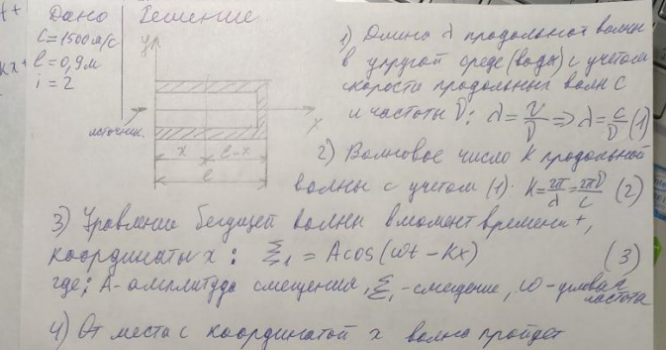 t +
Kx +
Дано
Решение
C = 1500 м/с
l = 0,9 м
i = 2
y
источник
x
x
l - x
l
1) Длина λ продольной волны
в упругой среде (воды) с учетом
скорости продольных волн С
и частоты ν: λ = v/ν => λ = c/ν (1)
2) Волновое число К продольной
волны с учетом (1): К = 2π/λ = 2πν/c (2)
3) Уравнение бегущей волны в момент времени t,
координаты x: ξ₁ = A cos(ωt - Kx) (3)
где: А - амплитуда смещения, ξ₁ - смещение, ω - угловая
частота
4) От места с координатой x волна пройдет